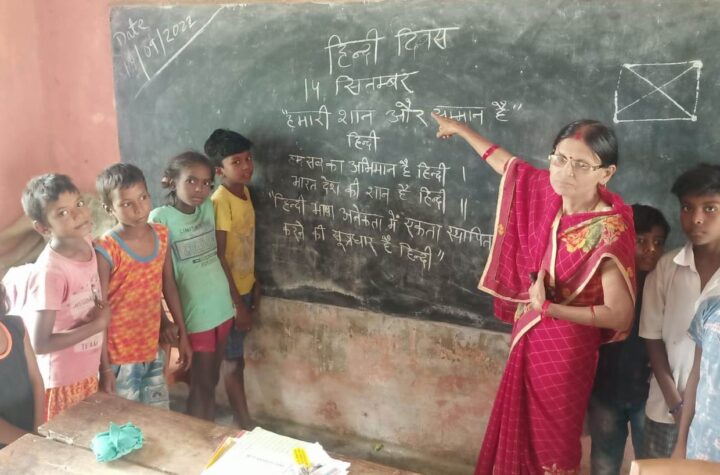 Date
14/09/2022
हिन्दी दिवस
14 सितम्बर
"हमारी शान और सम्मान है"
हिन्दी
हम सबका अभिमान है हिन्दी ।
भारत देश की शान है हिन्दी ॥
"हिन्दी भाषा अनेकता में एकता स्थापित
करने की सूत्रधार है हिन्दी"
TEAM